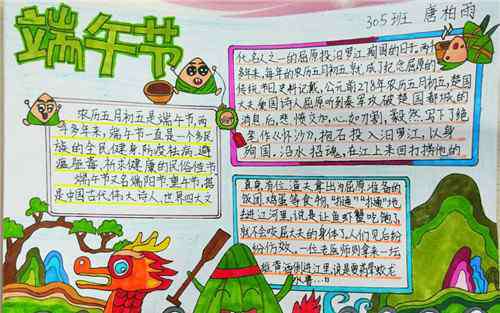 305班 唐柏雨
端午节
农历五月初五是端午节,两
千多年来,端午节一直是一个多民
族的全民健身,防疫祛病,避
瘟驱毒,祈求健康的民俗佳节
端午节又名端阳节,重午节,据
是中国古代伟大诗人、世界四大文
化名人之一的屈原投汨罗江殉国的日子。两千
多年来,每年的农历五月初五就成了纪念屈原的
传统节日。史料记载,公元前278年农历五月初五,楚国
大夫、爱国诗人屈原听到秦军攻破楚国都城的
消息后,悲愤交加,心如刀割,毅然写下了绝
笔作《怀沙》,抱石投入汨罗江,以身
殉国。沿水招魂,在江上来回打捞他的
真身。有位渔夫拿出为屈原准备的
饭团、鸡蛋等食物,“扑通”“扑通”地
丢进江河里,说是让鱼虾蟹吃饱了,
就不会咬屈大夫的身体了。人们见后纷
纷仿效。一位老医师则拿来一坛
雄黄酒倒进江里,说是要药晕蛟龙
水兽……